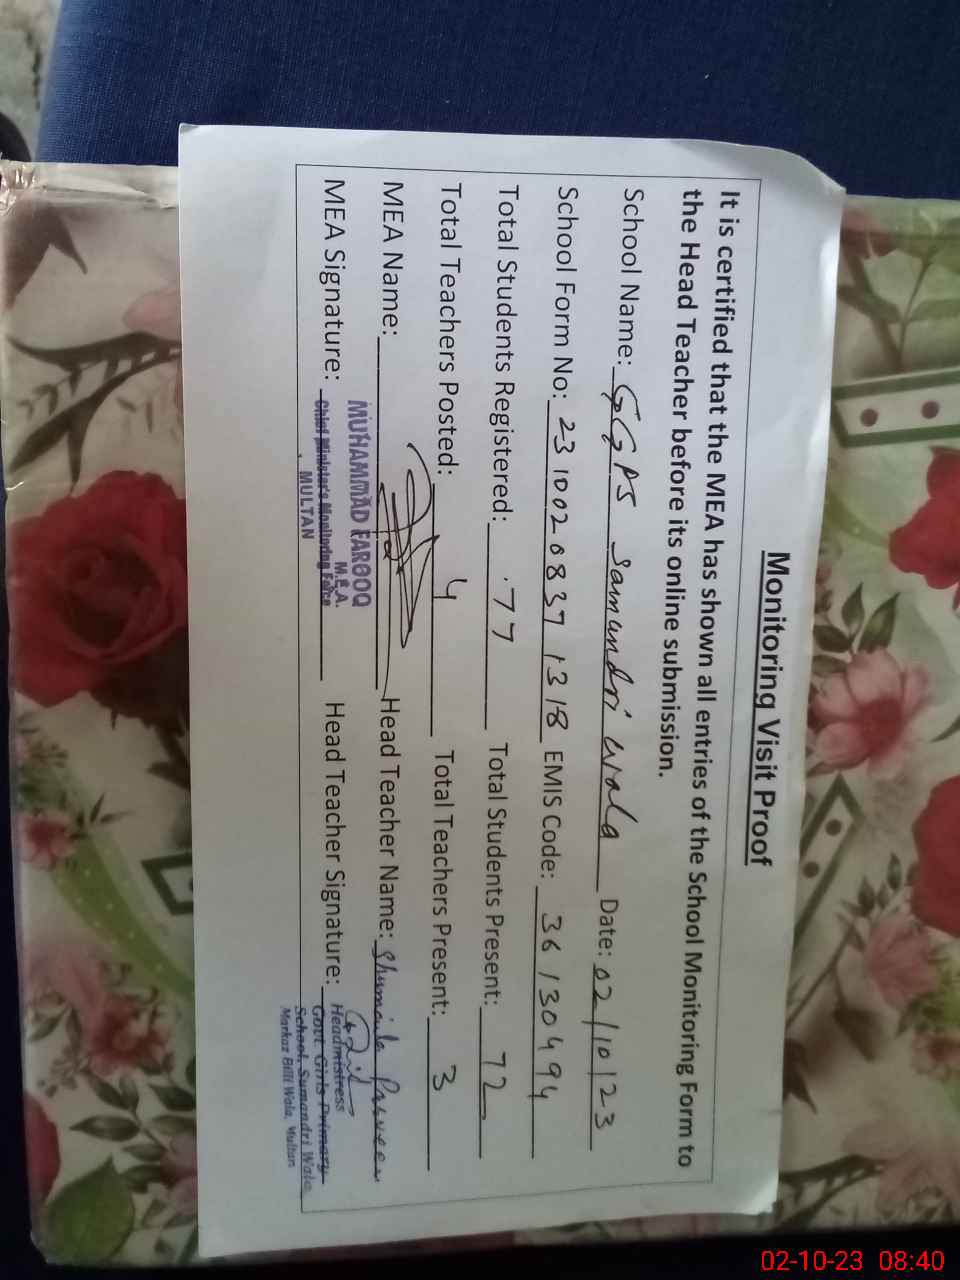 Monitoring Visit Proof
It is certified that the MEA has shown all entries of the School Monitoring Form to
the Head Teacher before its online submission.
School Name: GGPS Samundri wala Date: 02/10/23
School Form No: 23 1002 0837 1318 EMIS Code: 36130494
Total Students Registered: 77 Total Students Present: 72
Total Teachers Posted: 4 Total Teachers Present: 3
MEA Name: Head Teacher Name: Shumaila Parveen
MEA Signature: Head Teacher Signature:
MUHAMMAD FAROOQ
M.E.A.
Chief Minister's Monitoring Force
MULTAN
Headmistress
Govt. Girls Primary
School, Sumandri Wala
Markaz Billi Wala, Multan
02-10-23 08:40